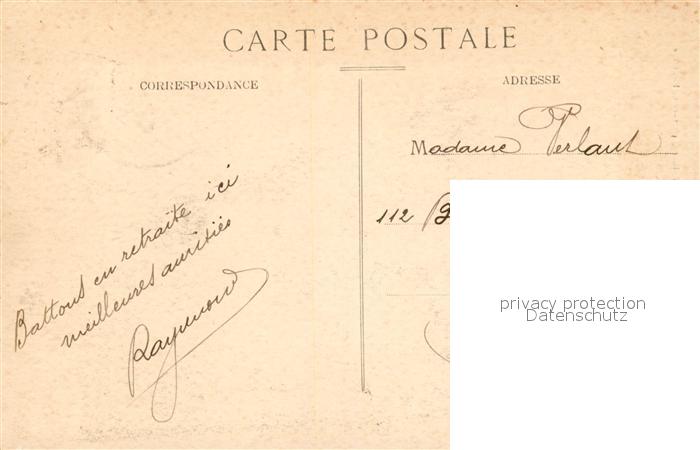 CARTE POSTALE
CORRESPONDANCE
ADRESSE
Madame Perlaut
112 B
Battons en retraite ici
meilleures amitiés
Raymond
privacy protection
Datenschutz